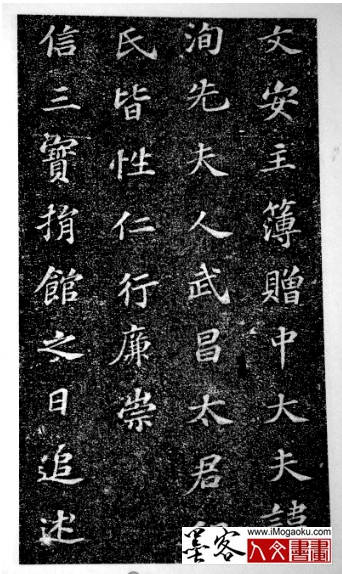 文安主簿贈中大夫諱
洵先夫人武昌太君
氏皆性仁行廉崇
信三寶捐館之日追述
墨客
www.iMogaoku.com
人文書畫